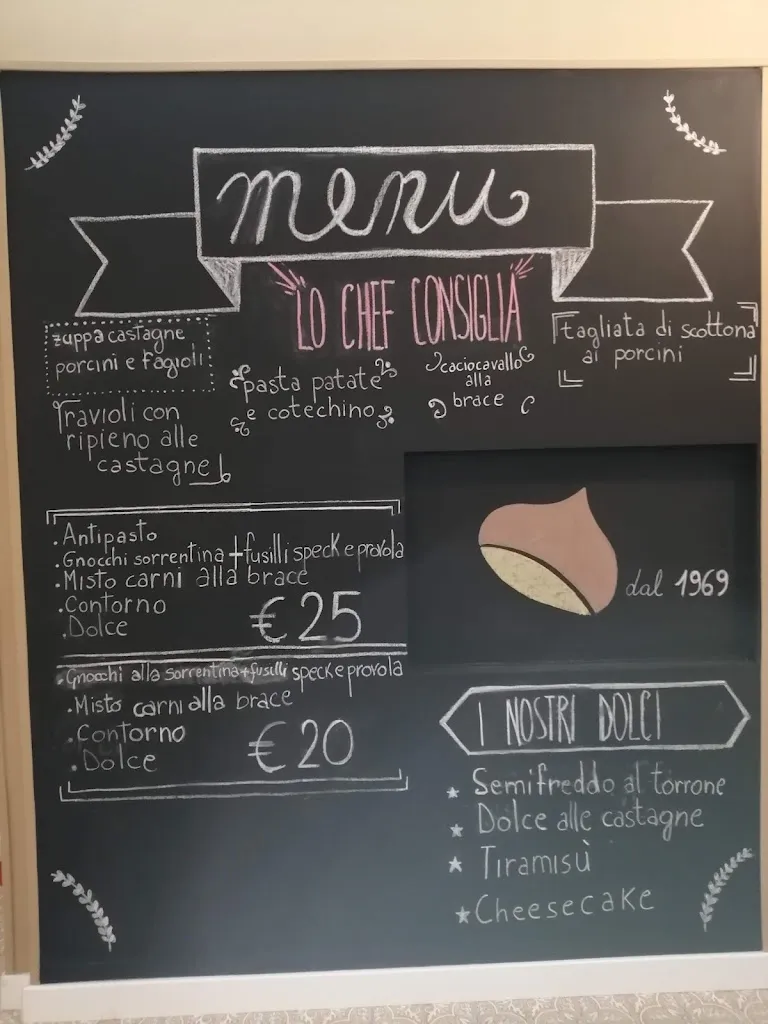 menu
LO CHEF CONSIGLIA
zuppa castagne
porcini e fagioli
ravioli con
ripieno alle
castagne
pasta patate
e cotechino
caciocavallo
alla
brace
tagliata di scottona
ai porcini
.Antipasto
.Gnocchi sorrentina+fusilli speck e provola
.Misto carni alla brace
.Contorno
.Dolce
€25
.Gnocchi alla sorrentina+fusilli speck e provola
.Misto carni alla brace
.Contorno
.Dolce
€20
dal 1969
I NOSTRI DOLCI
★ Semifreddo al torrone
★ Dolce alle castagne
★ Tiramisù
★ Cheesecake